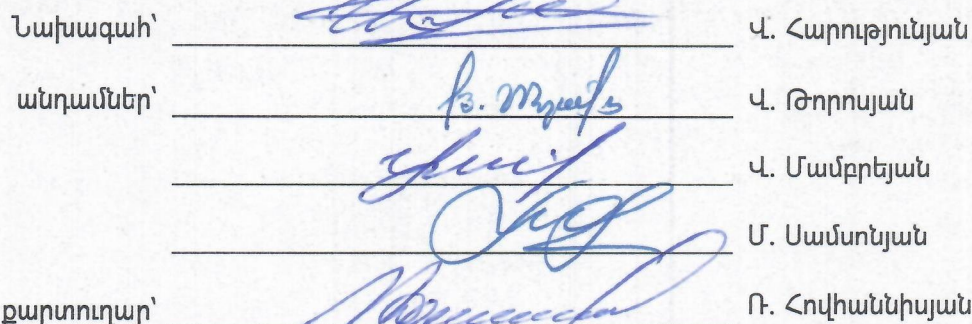 Նախագահ՝ Վ. Հարությունյան
անդամներ՝ Վ. Թորոսյան
Վ. Մամբրեյան
Մ. Սամսոնյան
քարտուղար՝ Ռ. Հովհաննիսյան